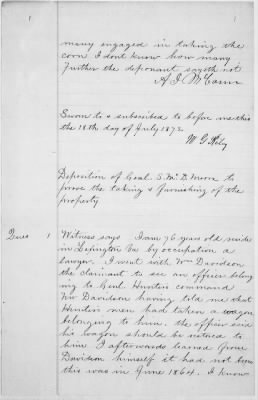 1 1
many engaged in taking the
corn I dont know how many
Further the deponant sayeth not
A. J. McCann
Sworn to & subscribed to before me this
the 18th day of July 1872
W G
Deposition of Genl. S. McD. Moore to
prove the taking & furnishing of the
property
Ques 1 Witness says I am 76 years old, reside
in Lexington Va by occupation a
lawyer. I went with Wm Davidson
the claimant to see an officer belong
ing to Genl Hunters command
Wm Davidson having told me that
Hunters men had taken a wagon
belonging to him. the officer said
his wagon should be returned to
him I afterwards learned from
Davidson himself it had not been
this was in June 1864. I know